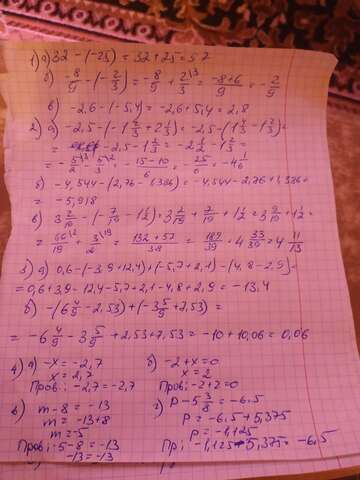 1) а) 32 - (-25) = 32 + 25 = 57
б) -8/9 - (-2/3) = -8/9 + 2/3 = (-8+6)/9 = -2/9
в) -2,6 - (-5,4) = -2,6 + 5,4 = 2,8
2) а) -2,5 - (-1 2/3 + 2 1/3) = -2,5 - (1 2/3 - 1 2/3) =
= -2,5 - 1 2/3 = -2 1/2 - 1 2/3 =
= -5/2 - 5/3 = (-15-10)/6 = -25/6 = -4 1/6
б) -4,544 - (2,76 - 1,386) = -4,544 - 2,76 + 1,386 =
= -5,918
в) 3 2/19 - (-7/19 - 1 1/2) = 3 2/19 + 7/19 + 1 1/2 = 3 9/19 + 1 1/2 =
= 66/19 + 3/2 = (132 + 57)/38 = 189/39 = 4 33/39 = 4 11/13
3) а) 0,6 - (-3,9 + 12,4) + (-5,7 + 2,1) - (4,8 - 2,9) =
= 0,6 + 3,9 - 12,4 - 5,7 + 2,1 - 4,8 + 2,9 = -13,4
б) -(6 4/9 - 2,53) + (-3 5/9 + 7,53) =
= -6 4/9 - 3 5/9 + 2,53 + 7,53 = -10 + 10,06 = 0,06
4) а) -x = -2,7
x = 2,7
Пров: -2,7 = -2,7
б) -2 + x = 0
x = 2
Пров: -2 + 2 = 0
в) m - 8 = -13
m = -13 + 8
m = -5
Пров: -5 - 8 = -13
-13 = -13
г) p - 5 3/8 = -6,5
p = -6,5 + 5,375
p = -1,125
Пр: -1,125 - 5,375 = -6,5